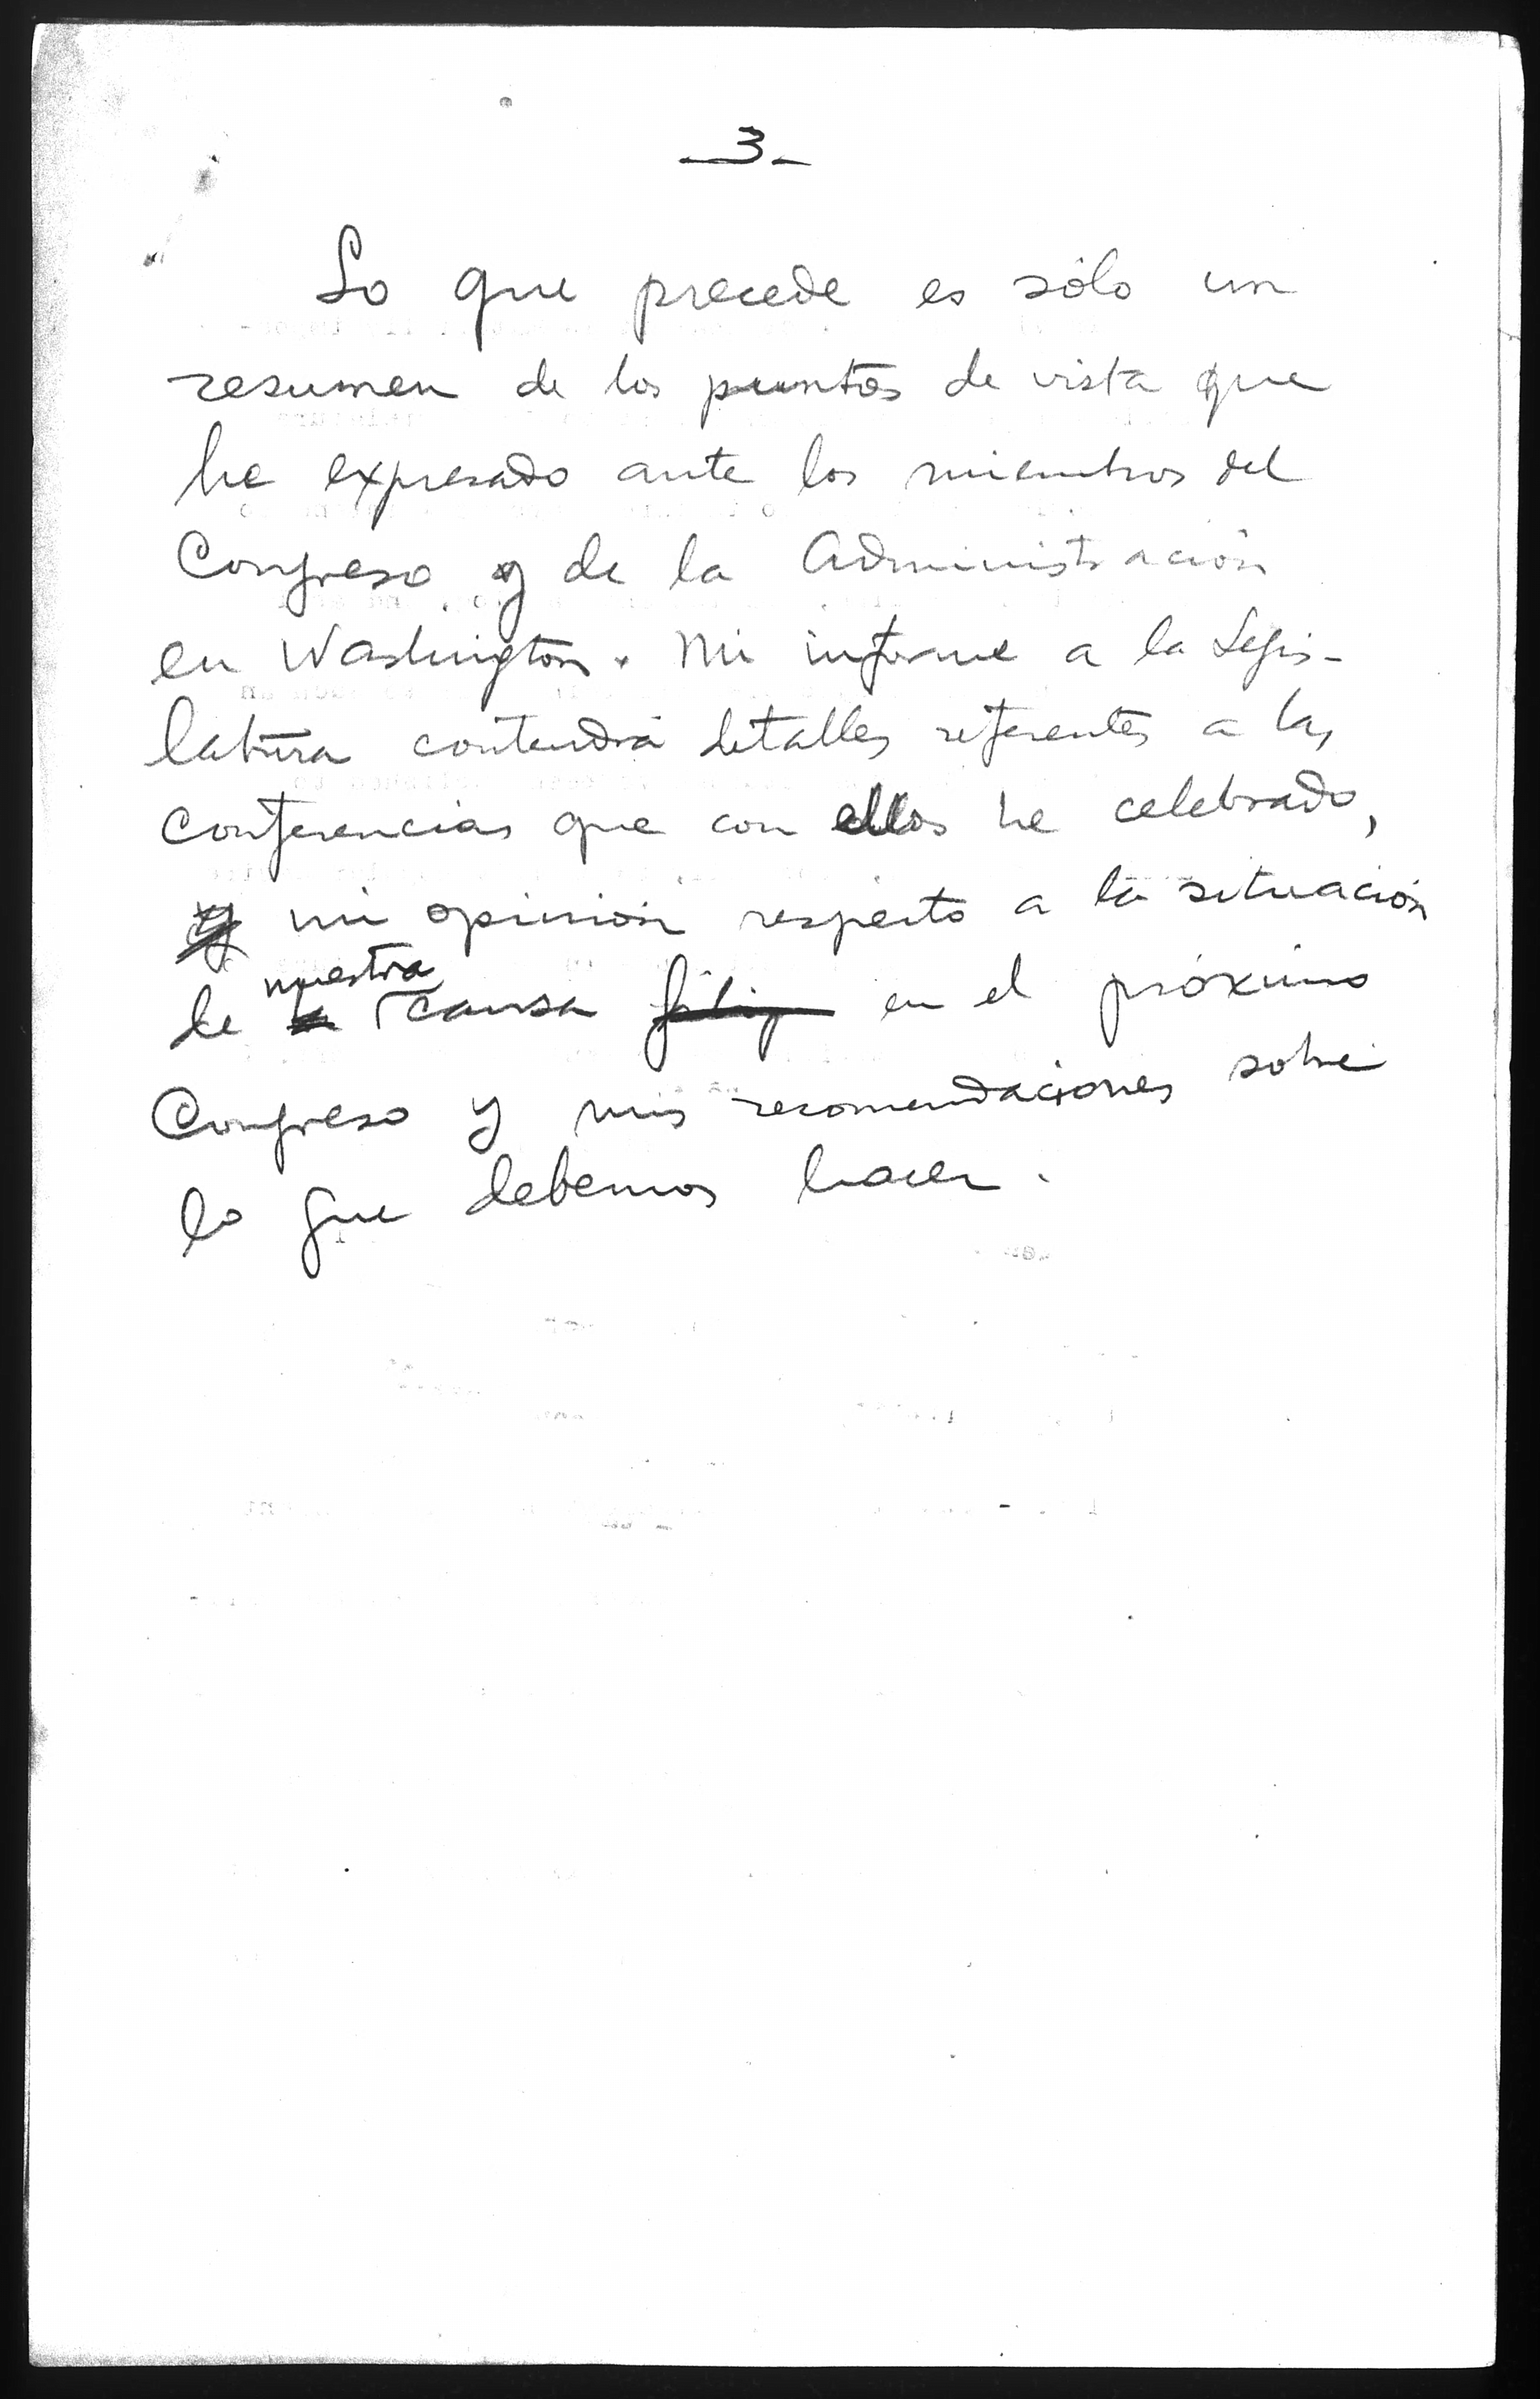 -3-
Lo que precede es sólo un
resumen de los puntos de vista que
he expresado ante los miembros del
Congreso y de la Administración
en Washington. Mi informe a la Legis-
latura contendrá detalles referentes a las
conferencias que con ellos he celebrado,
y mi opinión respecto a la situación
nuestra
de la causa filip en el próximo
Congreso y mis recomendaciones sobre
lo que debemos hacer.